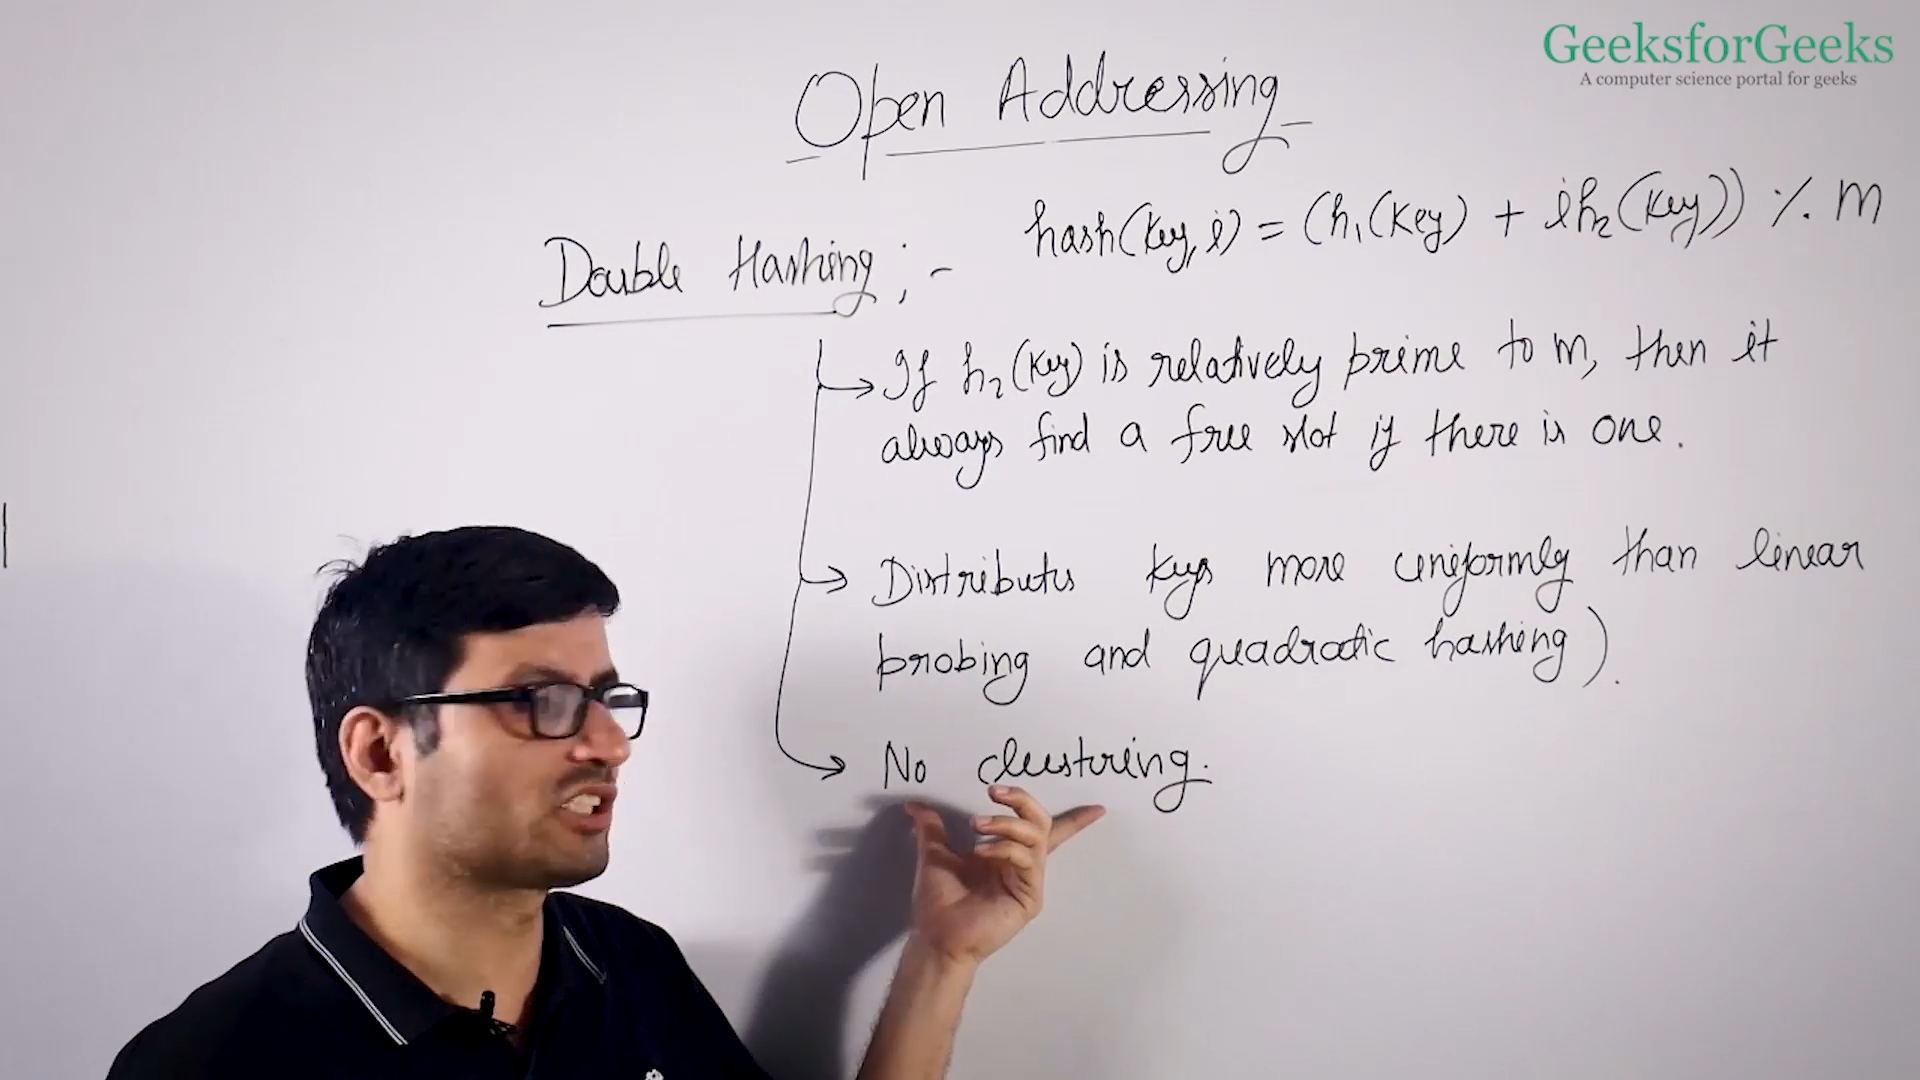 GeeksforGeeks
A computer science portal for geeks
Open Addressing
hash(key, i) = (h₁(key) + i h₂(key)) % m
Double Hashing :-
→ If h₂(key) is relatively prime to m, then it
always find a free slot if there is one.
→ Distributes keys more uniformly than linear
probing and quadratic hashing).
→ No clustering.